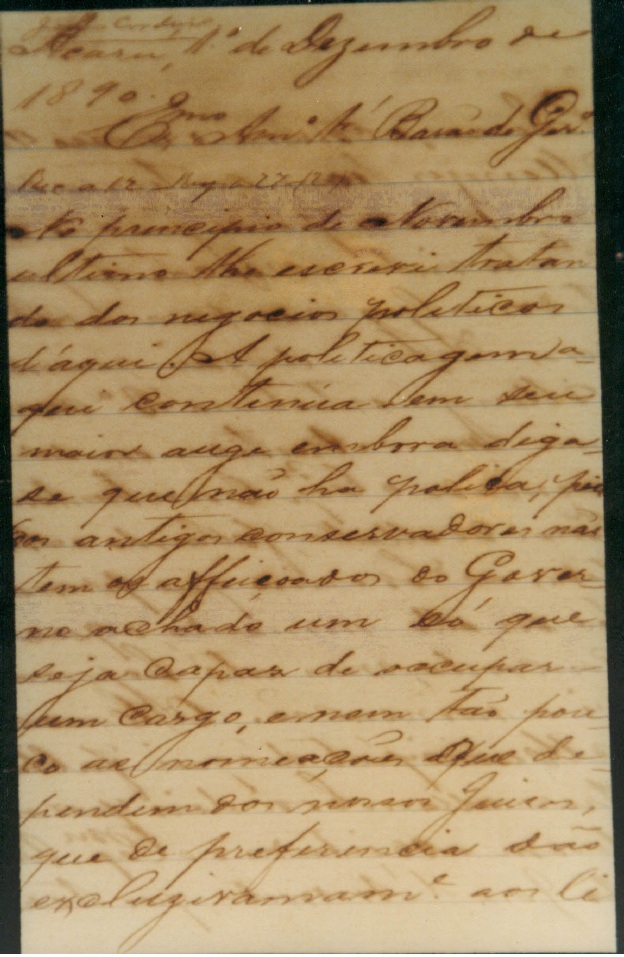 Acarú, 1º de Dezembro de
1890.
Exmo Amº Sr. Barão de
No principio de Novembro
ultimo lhe escrevi tratan
do dos negocios politicos
d'aqui. A politicagem a-
qui continúa em seu
maior auge embora diga-
se que não ha politica, pois
os antigos conservadores não
tem os affeiçoados do Gover
no achado um só que
seja capaz de occupar
um cargo, e nem tão pou
co as nomeações que de-
pendem dos nossos Juises,
que de preferencia são
excluzivamamte aos li